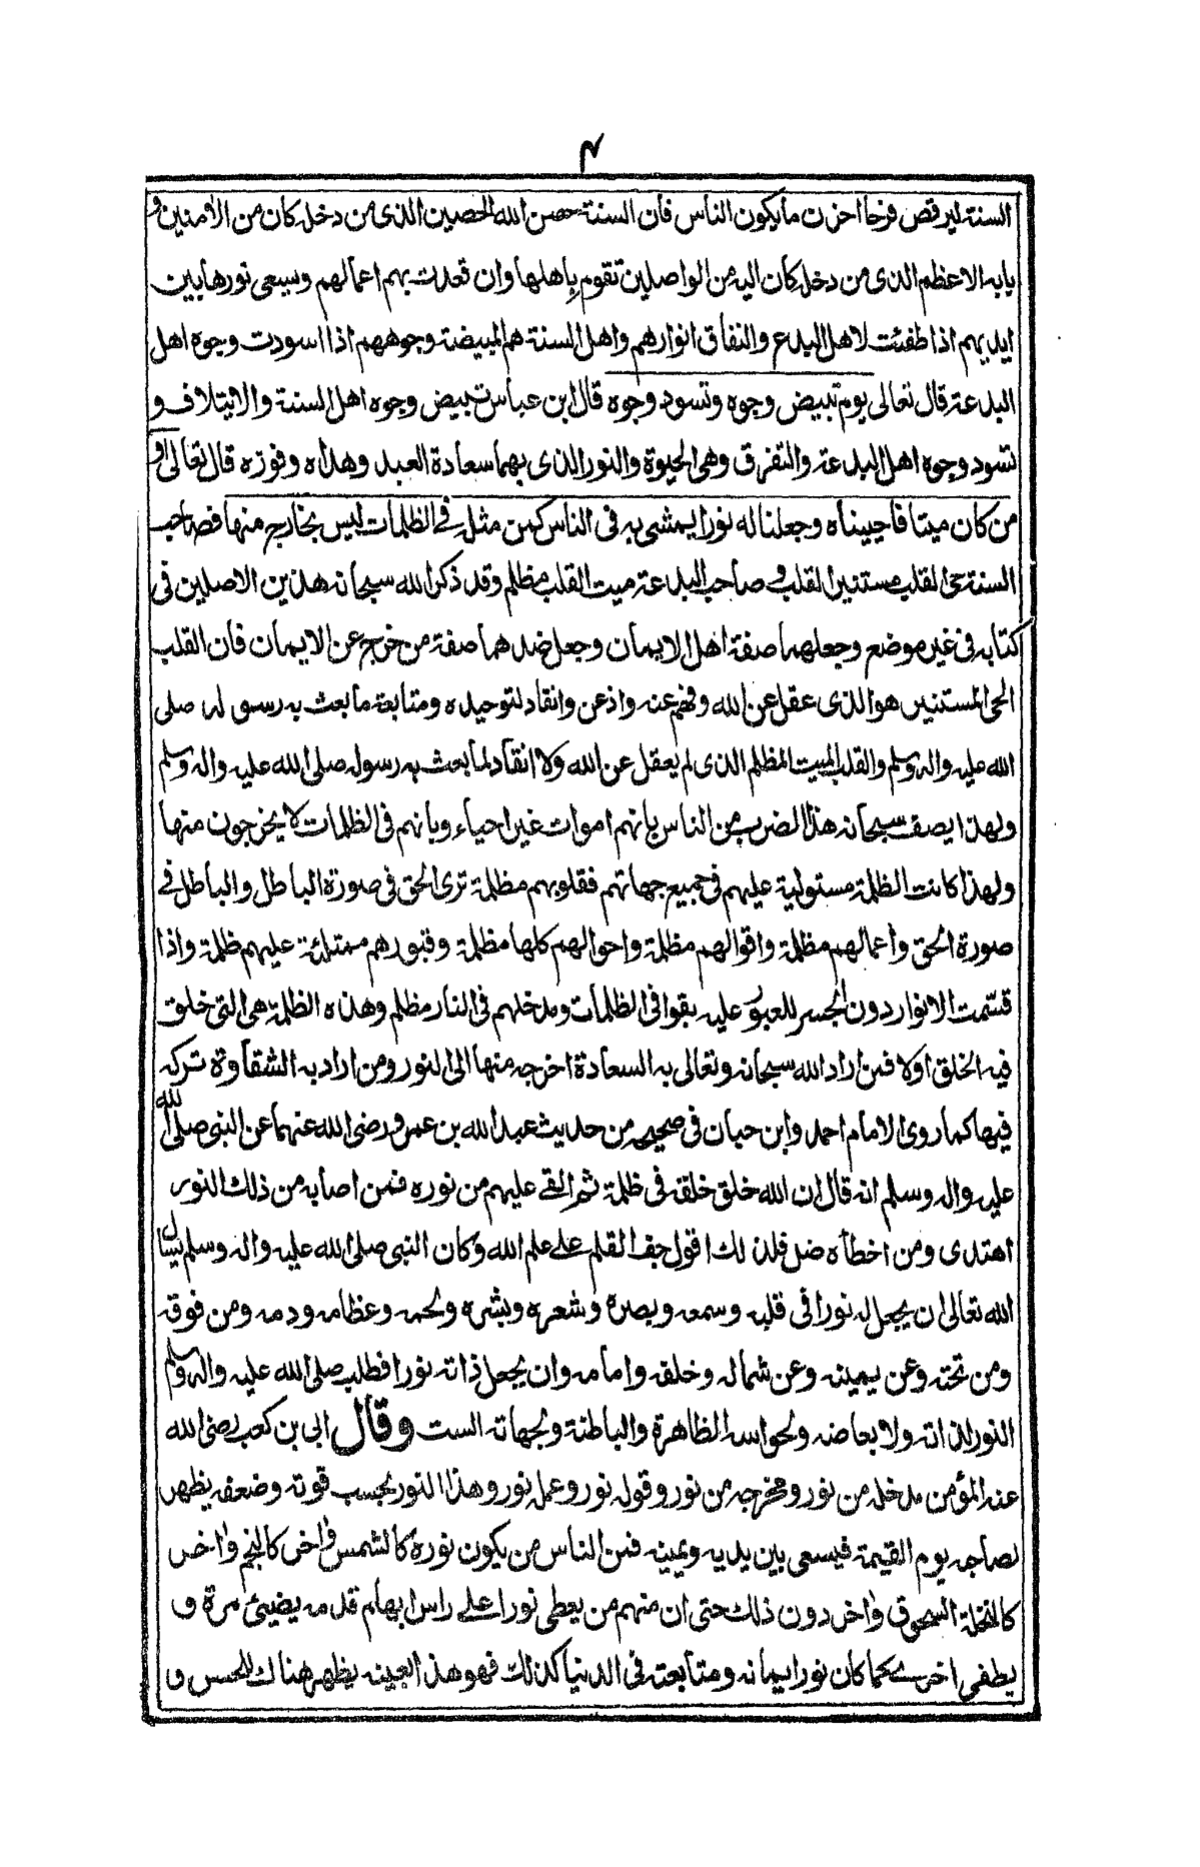 ٤
السنة ليرقص فرحا احزن ما يكون الناس فان السنة حصن الله الحصين الذى من دخله كان من الآمنين و
بابه الاعظم الذى من دخله كان اليه من الواصلين تقوم باهلها وان قعدت بهم اعمالهم ويسعى نورها بين
ايديهم اذا طفئت لاهل البدع والنفاق انوارهم واهل السنة هم المبيضة وجوههم اذا اسودت وجوه اهل
البدعة قال تعالى يوم تبيض وجوه وتسود وجوه قال ابن عباس تبيض وجوه اهل السنة والايتلاف و
تسود وجوه اهل البدعة والتفرق وهى الحيوة والنور الذى بهما سعادة العبد وهداه وفوزه قال تعالى او
من كان ميتا فاحييناه وجعلنا له نورا يمشى به فى الناس كمن مثله فى الظلمات ليس بخارج منها فصاحب
السنة حى القلب مستنير القلب و صاحب البدعة ميت القلب مظلم وقد ذكر الله سبحانه هذين الاصلين فى
كتابه فى غير موضع وجعلهما صفة اهل الايمان وجعل ضدهما صفة من خرج عن الايمان فان القلب
الحى المستنير هو الذى عقل عن الله وفهم عنه واذعن وانقاد لتوحيده ومتابعة ما بعث به رسوله صلى
الله عليه واله وسلم والقلب الميت المظلم الذى لم يعقل عن الله ولا انقاد لما بعث به رسوله صلى الله عليه واله وسلم
ولهذا يصف سبحانه هذا الضرب من الناس بانهم اموات غير احياء وبانهم فى الظلمات لا يخرجون منها
ولهذا كانت الظلمة مستولية عليهم فى جميع جهاتهم فقلوبهم مظلمة ترى الحق فى صورة الباطل والباطل فى
صورة الحق واعمالهم مظلمة واقوالهم مظلمة واحوالهم كلها مظلمة وقبورهم ممتلئة عليهم ظلمة واذا
قسمت الانوار دون الجسر للعبور عليه بقوا فى الظلمات ومدخلهم فى النار مظلم وهذه الظلمة هى التى خلق
فيه الخلق اولا فمن اراد الله سبحانه وتعالى به السعادة اخرجه منها الى النور ومن اراد به الشقاوة تركه
فيها كما روى الامام احمد وابن حبان فى صحيحه من حديث عبد الله بن عمرو رضى الله عنهما عن النبى صلى الله
عليه واله وسلم انه قال ان الله خلق خلقه فى ظلمة ثم القى عليهم من نوره فمن اصابه من ذلك النور
اهتدى ومن اخطأه ضل فلذلك اقول جف القلم على علم الله وكان النبى صلى الله عليه واله وسلم يسأل
الله تعالى ان يجعل له نورا فى قلبه وسمعه وبصره وشعره وبشره ولحمه وعظامه ودمه ومن فوقه
ومن تحته وعن يمينه وعن شماله وخلفه وامامه وان يجعل ذاته نورا فطلب صلى الله عليه واله وسلم
النور لذاته ولابعاضه ولحواسه الظاهرة والباطنة ولجهاته الست وقال ابى بن كعب رضى الله
عنه المؤمن مدخله من نور ومخرجه من نور وقوله نور وعمله نور وهذا النور بحسب قوته وضعفه يظهر
لصاحبه يوم القيمة فيسعى بين يديه ويمينه فمن الناس من يكون نوره كالشمس واخر كالنجم واخر
كالنخلة السحوق واخر دون ذلك حتى ان منهم من يعطى نورا على راس ابهام قدمه يضيئ مرة و
يطفى اخرى كما كان نور ايمانه ومتابعته فى الدنيا كذلك فهو هذا بعينه يظهر هناك للحس و